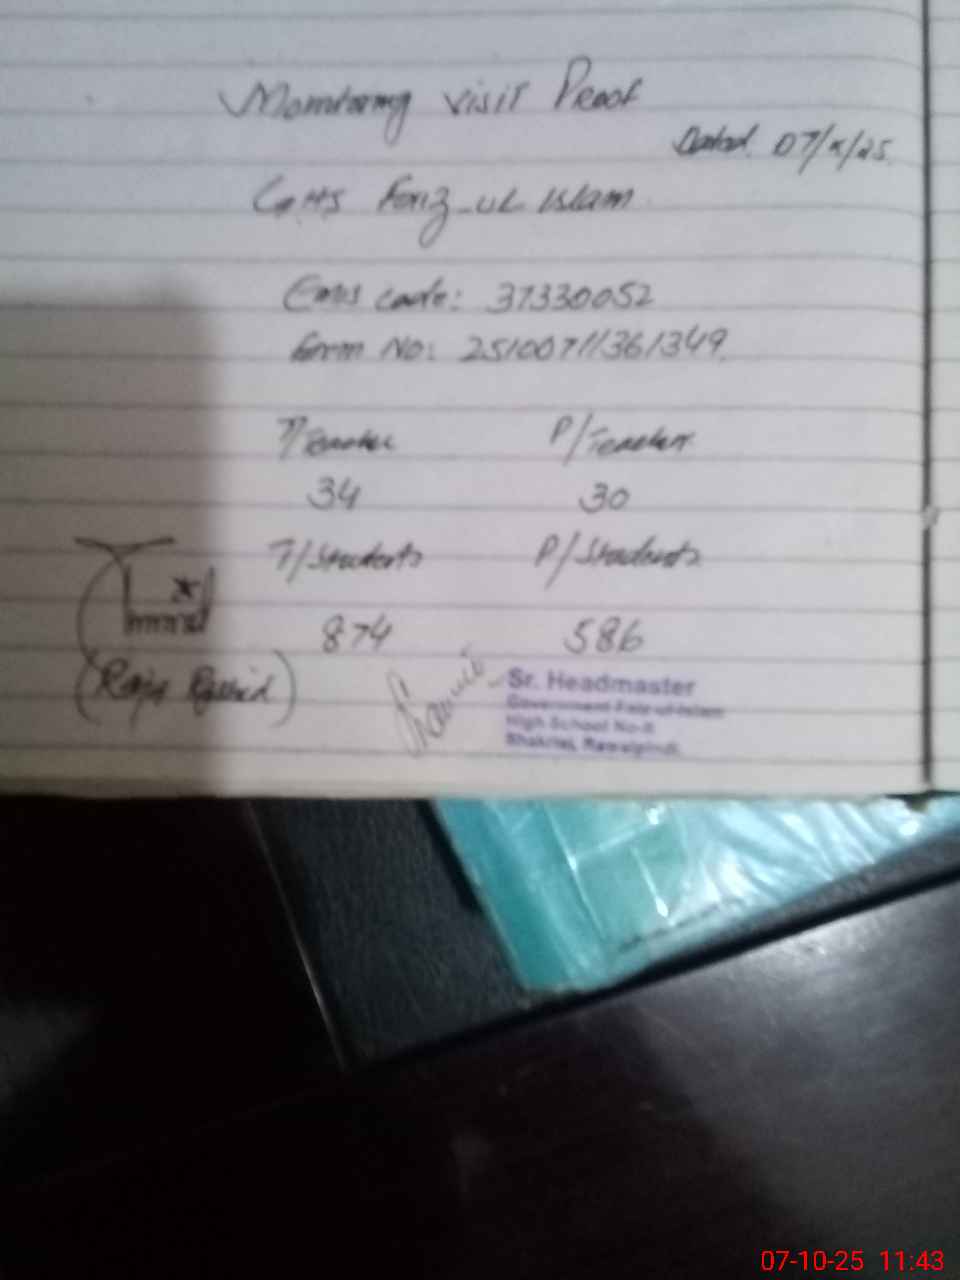 Monitoring visit Proof
Dated 07/x/25
GHS Faiz-ul Islam
Emis code: 37330052
Form No: 251007/1361349
T/Teacher P/Teacher
34 30
T/Students P/Students
874 586
(Raja Rashid)
Sr. Headmaster
Government Faiz-ul-Islam
High School No-II
Rawalpindi
07-10-25 11:43